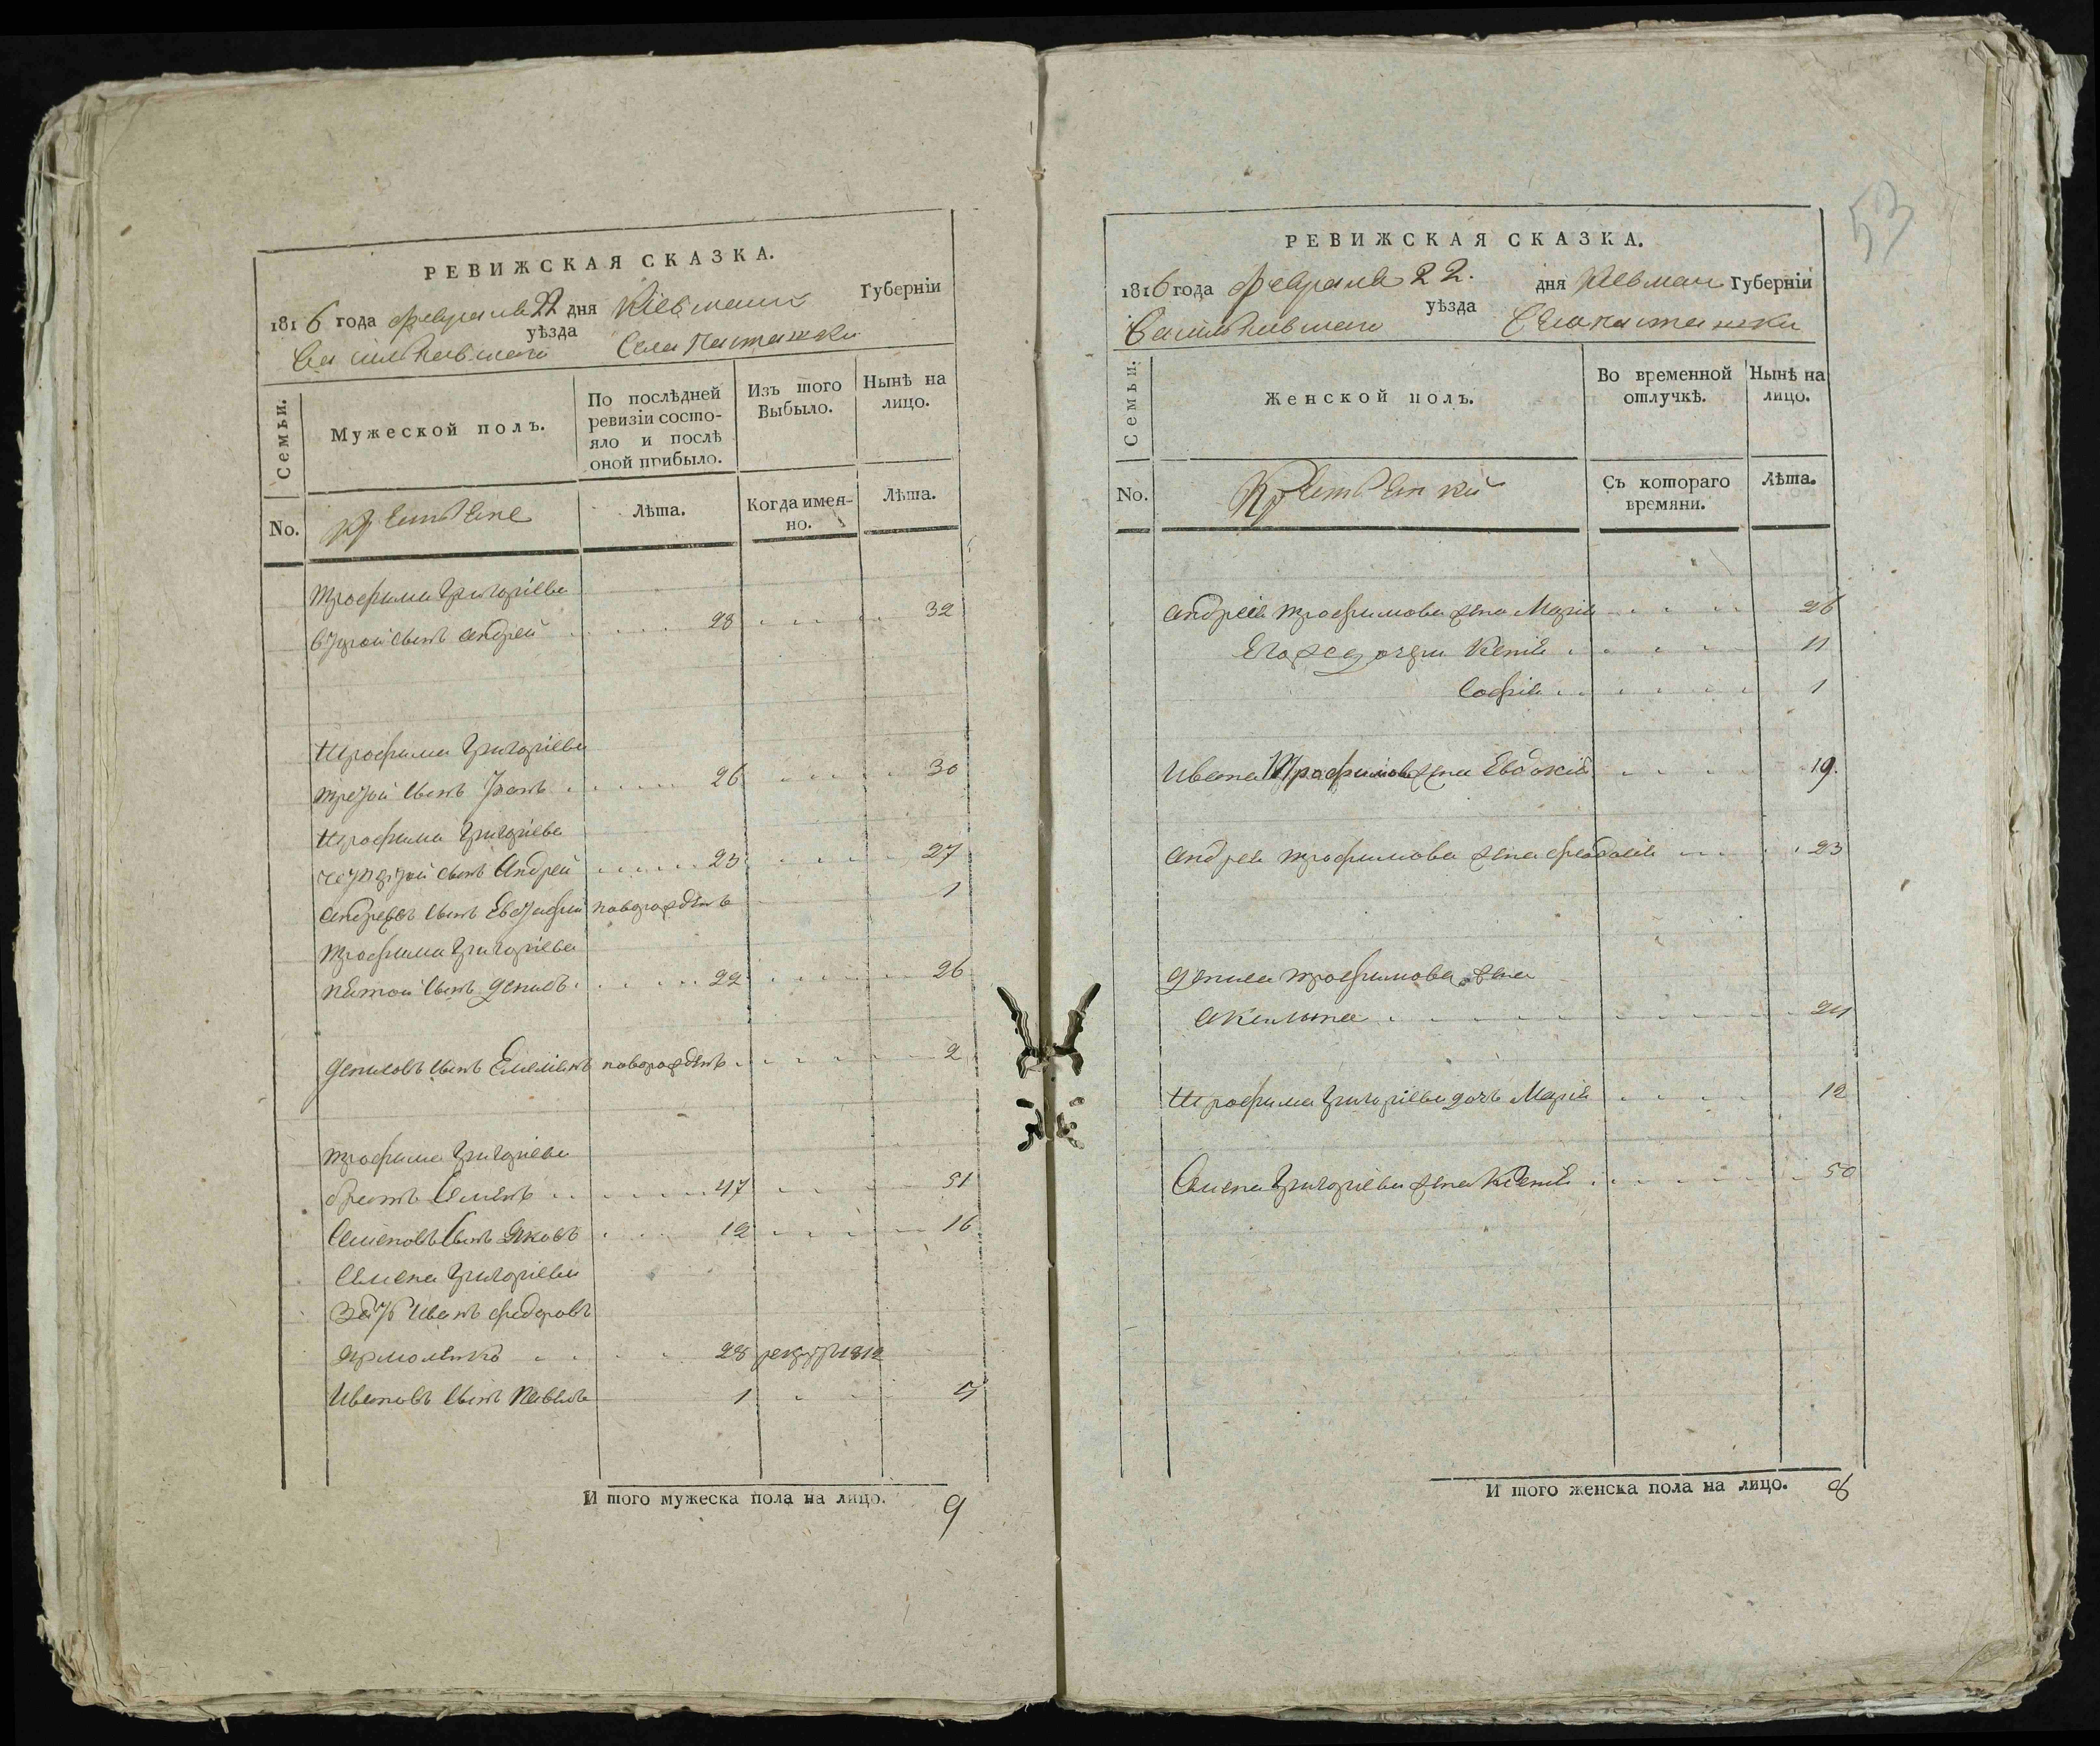 РЕВИЖСКАЯ СКАЗКА.
1816 года февраля 22 дня Кіевской Губерніи
Васильковского уѣзда Села Пасташки
Семьи.
Мужеской полъ.
По послѣдней ревизіи состояло и послѣ оной прибыло.
Изъ того Выбыло.
Нынѣ на лицо.
No.
Крестьяне
Лѣта.
Когда имянно.
Лѣта.
Трофима Григоріева
второй сынъ Андрей 28 32
Трофима Григоріева
третой сынъ 26 30
Трофима Григоріева
четвертой сынъ Андрей 23 27
Андреевъ сынъ Евстафій новорожденъ 1
Трофима Григоріева
пятой сынъ Денисъ 22 26
Денисовъ сынъ Емеліянъ новорожденъ 2
Трофима Григоріева
братъ Семенъ 47 51
Семеновъ сынъ Яковъ 12 16
Семена Григоріева
Зять Иванъ Федоровъ
28 рекрутъ 1812
Ивановъ сынъ Павелъ 1 5
И того мужеска пола на лицо. 9
53
РЕВИЖСКАЯ СКАЗКА.
1816 года февраля 22. дня Кіевской Губерніи
Васильковского уѣзда Села Пасташки
Семьи.
Женской полъ.
Во временной отлучкѣ.
Нынѣ на лицо.
No.
Крестьянки
Съ котораго времяни.
Лѣта.
Андрея Трофимова жена Марія 26
Егоже дочери Ксенія 11
Софія 1
Ивана Трофимова жена Евдокія 19.
Андрея Трофимова жена Феодосія 23
Дениса Трофимова жена
Акилина 24
Трофима Григоріева дочь Марія 12
Семена Григоріева жена Ксенія 50
И того женска пола на лицо. 8